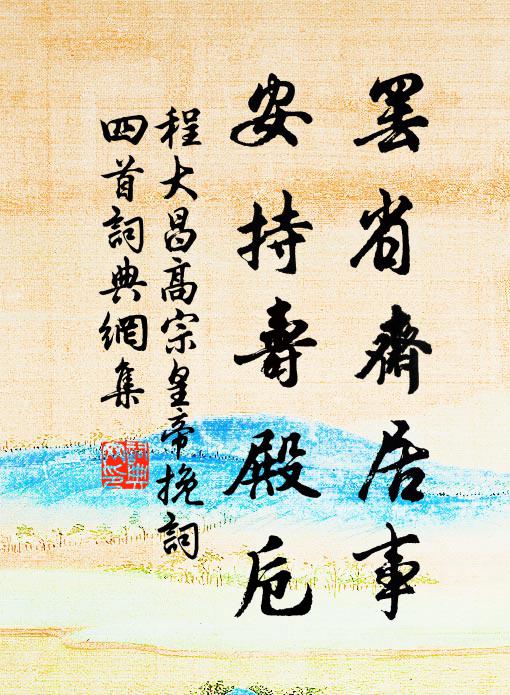 罢省齋居事
安持壽殿卮
程大昌高宗皇帝挽詞
四首詞典網集